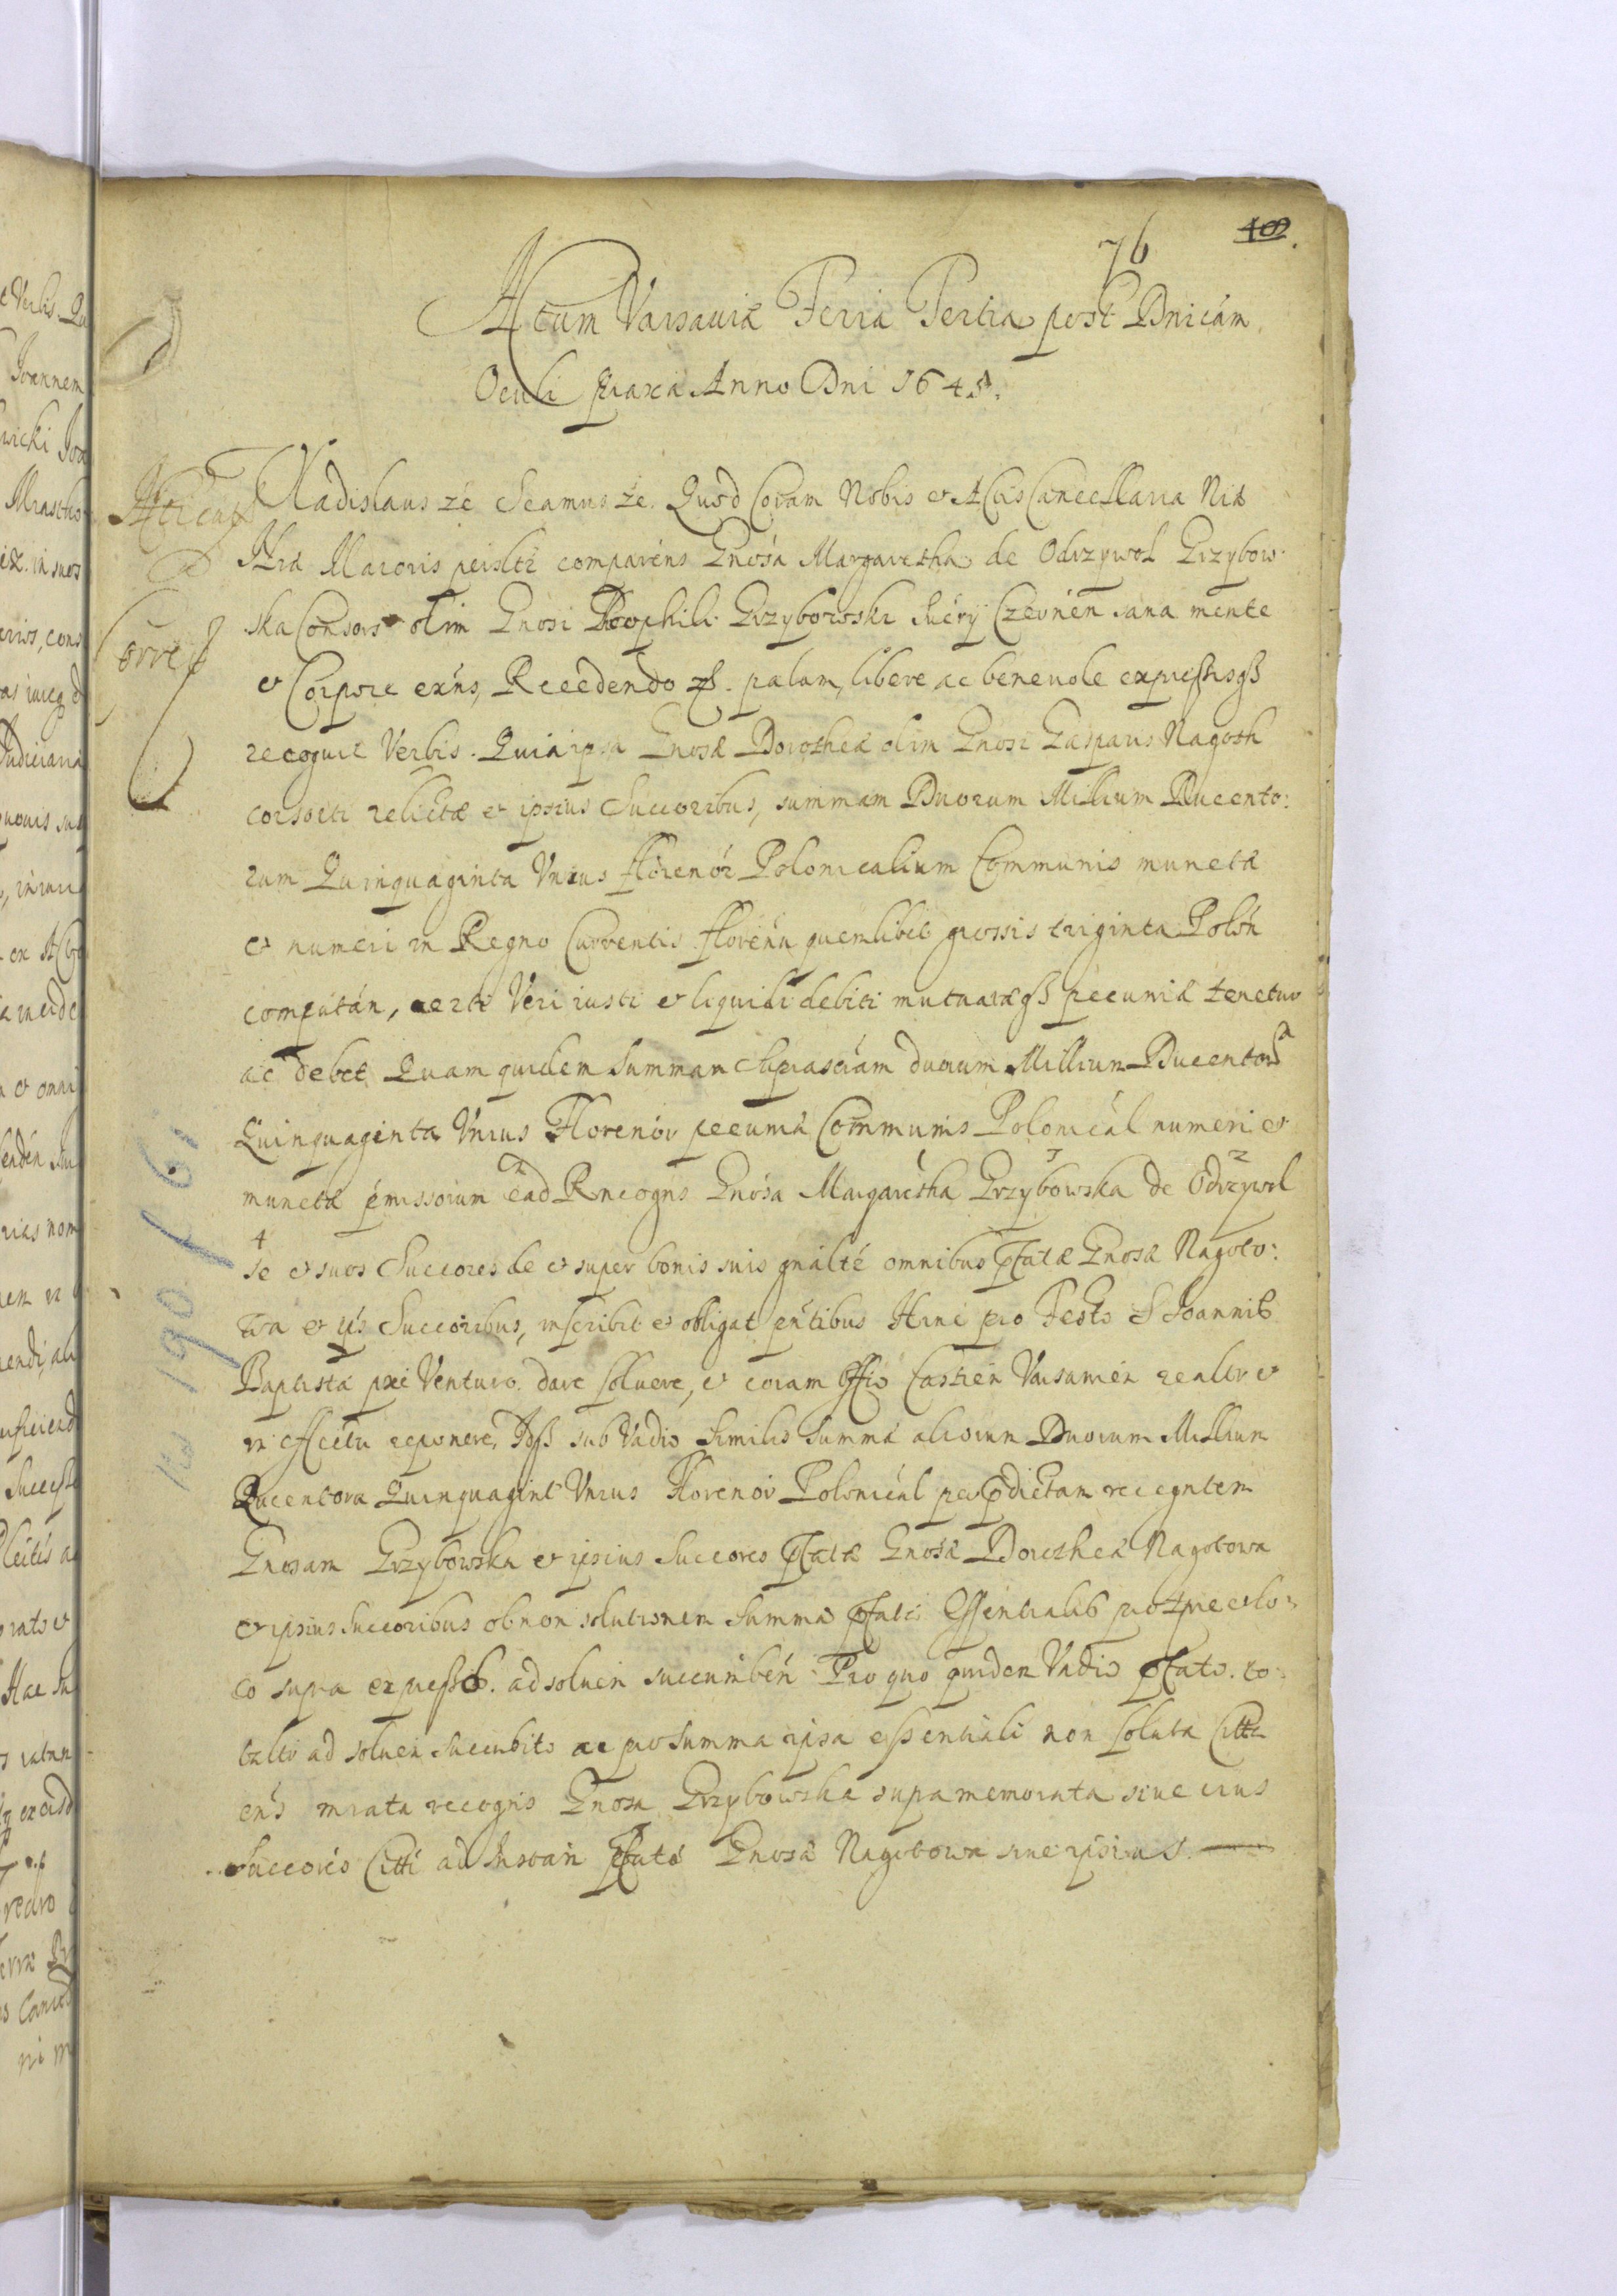 76 402.
Actum Varsaviæ Feria Tertia post Dnicám
Oculi Anno Dni 1645.
Vladislaus zc Seamus zc. Quod Coram Nobis et Actis Cancellariæ Nræ
Maioris comparéns Gnósa Margaretha de Odrzywoł Grzybow
ska Consors olim Gnosi Grzybowski sana mente
et Corpore exńs, Recedendo palam, libere ac benevole expressisqß
recognit Verbis. Quia ipsa Gnosæ Dorotheæ olim Gnosi Gasparis Nagoth
consorti relictæ et ipsius Succoribus, summam Duorum Millium Ducento:
rum Quinquaginta Vnius florenór Polonicalium Communis munetæ
et numeri in Regno Currentis florenū quemlibet grossis triginta Polón
compután, certi Veri iusti et liquidi debiti mutuatæqß pecuniæ tenetur
ac debet Quam quidem Summam Suprascrám duorum Millium Ducentorū
Quinquaginta Vnius Florenór pecuniæ Communis Polonicál numeri et
munetæ ead Recogńs Gnósa Margarétha Grzybowska de Odrzywol
3 2
4
se et suos Succores de et super bonis suis gnálté omnibus pfatæ Gnosæ Nagoto:
wa et Succoribus, inscribit et obligat pńtibus Hinc pro Festo S Ioannis
Baptistæ Venturo dare solvere, et coram Offio Castren Varsavien realtr et
in effcétu reponere, sub Vadio Similis Summæ aliorum Duorum Millium
Ducentorū Quinquagint Vnius Florenór Polonicál per pdictam recogntem
Gnosam Grzybowska et ipsius Succores pfatæ Gnosæ Dorotheæ Nagotowa
et ipsius Succoribus ob non solutionem Summæ pfatæ Essentialis pro tpre et lo:
co supra expresso ad soluen succumbén. Pro quo quidem Vadio pfato. to:
taltr ad soluen succubito ac pro Summa ipsa essentiali non soluta
mrata recogńs Gnosa Grzybowska supramemorata siue eius
Succorés ad Instan pfatæ Gnosæ Nagotowa siue ipsius